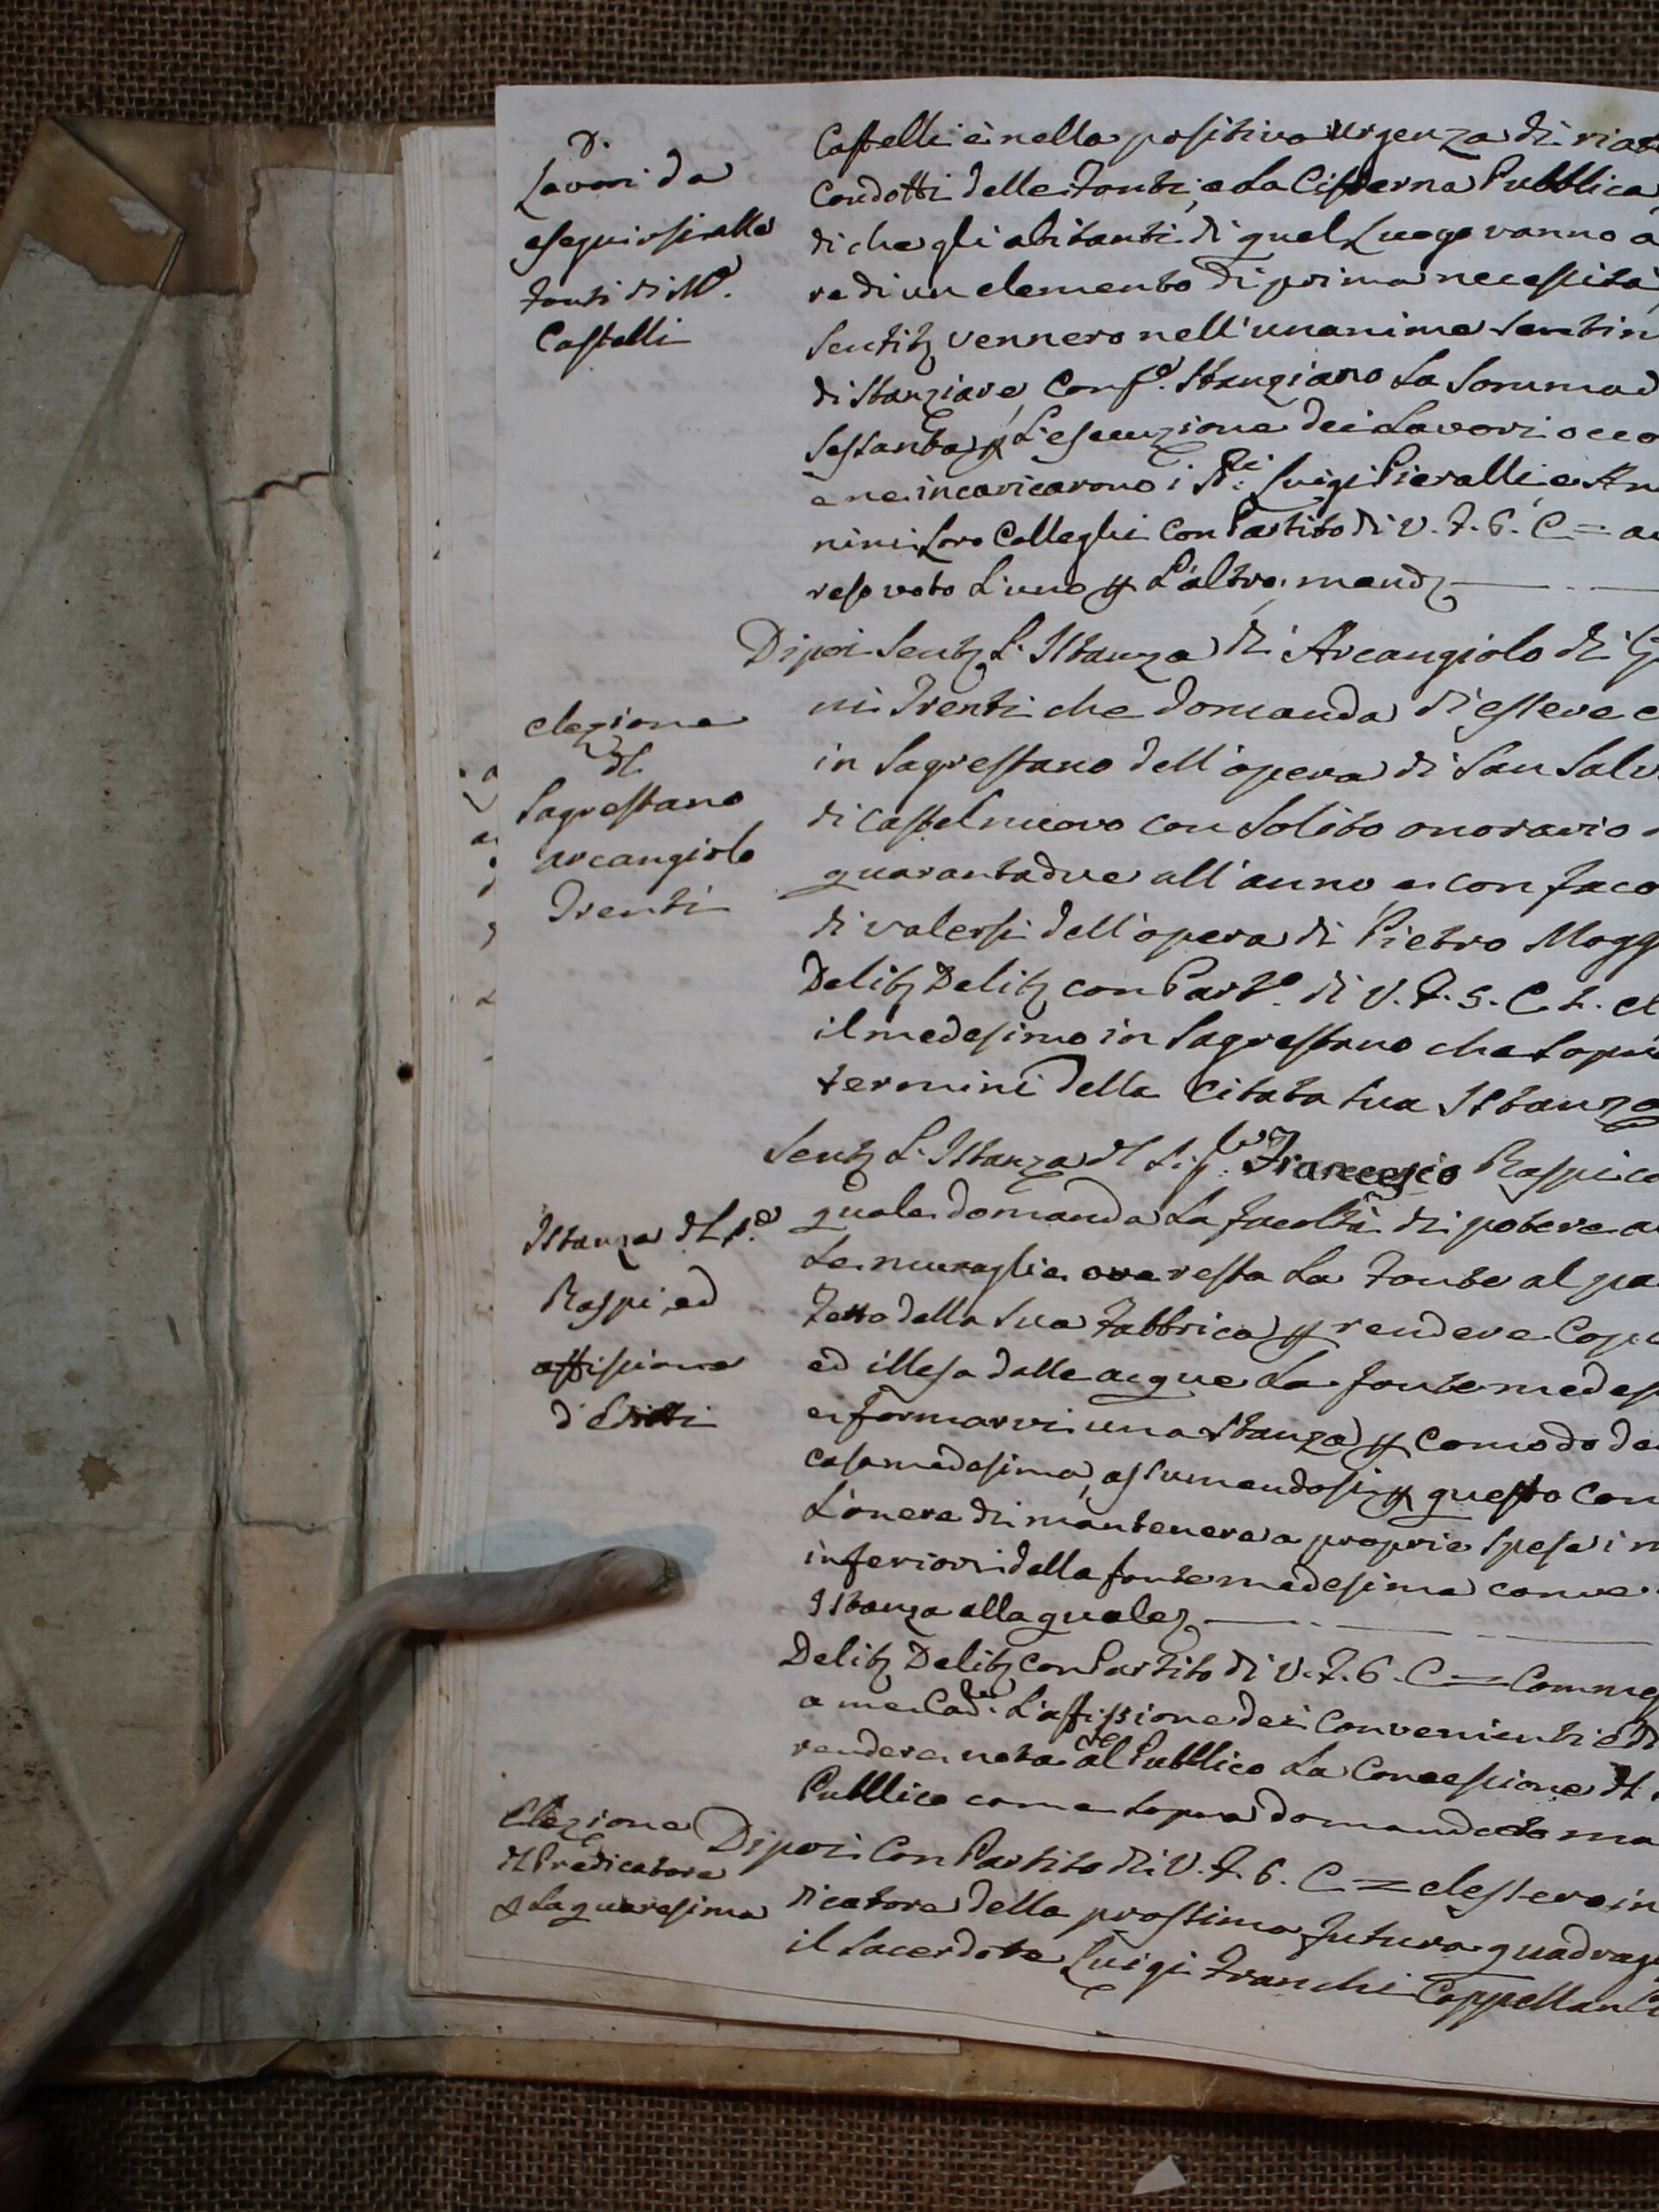 D.
Lavori da
eseguirsi alle
Fonti di M.e
Castelli
Castelli è nella positiva urgenza di
Condotti delle Fonti, e la Cisterna Pubblica
di che gli abitanti di quel Luogo vanno a
re di un elemento di prima necessità
Sentitz vennero nell'unanime
di Stanziare, Conf.e Stanziano La Somma d
Sessanta p L'esecuzione dei Lavori occo
e ne incaricarono i SS.ri Luigi Pieralli, e An
nini Loro Colleghi Con Partito di V. F. 6. C = a
reso voto L'uno p L'altro, mandz
Dipoi Sentz L'Istanza di Arcangiolo di G
ni Trenti che domanda di essere e
in Sagrestano dell'opera di San Salv
di Castelnuovo con Solito onorario
quarantadue all'anno, e con faco
di valersi dell'opera di Pietro Magg
Delibz Delibz con Part.o di V. F. 5. C. 1. el
il medesimo in Sagrestano che Sopra
termini della Citata Sua Istanza
elezione
di
Sagrestano
Arcangiolo
Trenti
Sentz L'Istanza del Sig.re Francesco Raspi co
quale domanda La facoltà di potere a
Le muraglie ove resta La Fonte al pa
Tetto della Sua Fabbrica p rendere Cope
ed illesa dalle acque La fonte medes
e formarvi una Stanza p Comodo de
casa medesima, assumendosi p questo Con
L'onere di mantenere a proprie Spese i m
inferiori della fonte medesima come
Istanza alla qualez
Istanza del S.e
Raspi, ed
affissione
d'Editti
Delibz Delibz con Partito di V. F. 6. C = Commes
a me Cad.re L'affissione dei Convenienti Edi
rendere nota al Pubblico La Concessione del
Pubblico come Sopra domandato ma
Elezione
del Predicatore
p La quaresima
Dipoi Con Partito di V. F. 6. C = elessero in
dicatore della prossima futura quadrage
il Sacerdote Luigi Franchi Cappellan